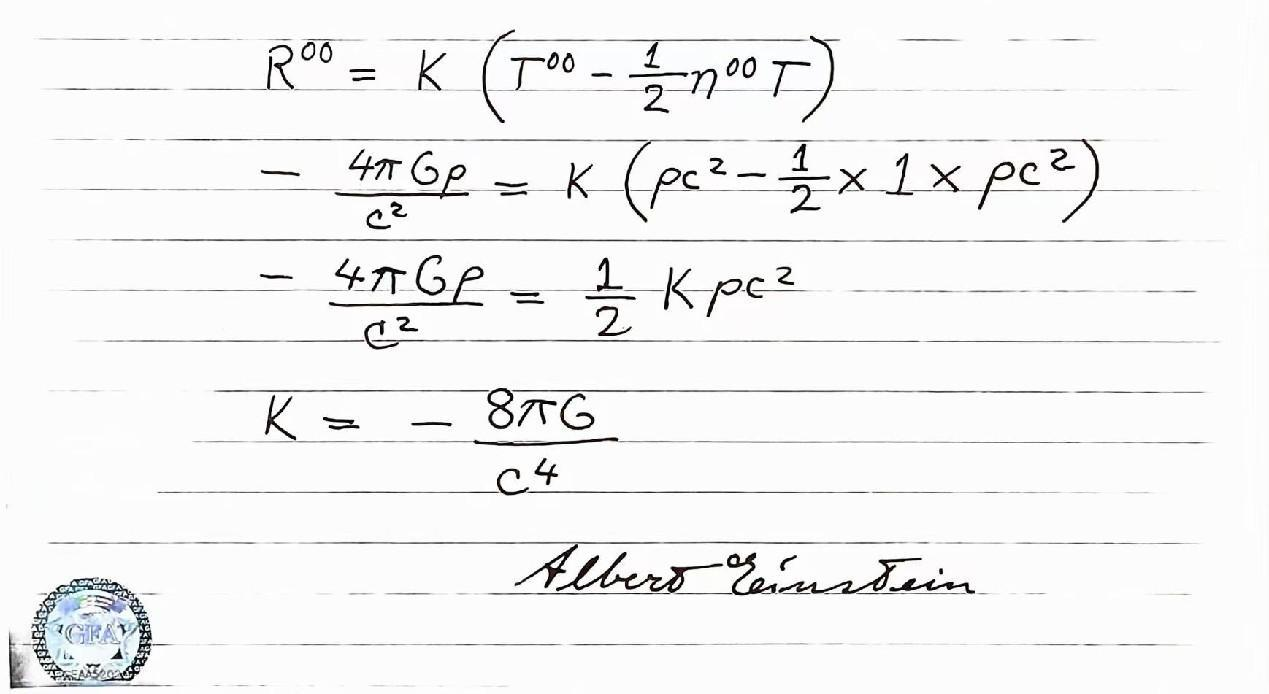 R⁰⁰ = K (T⁰⁰ - 1/2 η⁰⁰ T)
- 4πGρ/c² = K (ρc² - 1/2 × 1 × ρc²)
- 4πGρ/c² = 1/2 K ρc²
K = - 8πG/c⁴
Albert Einstein
GFA